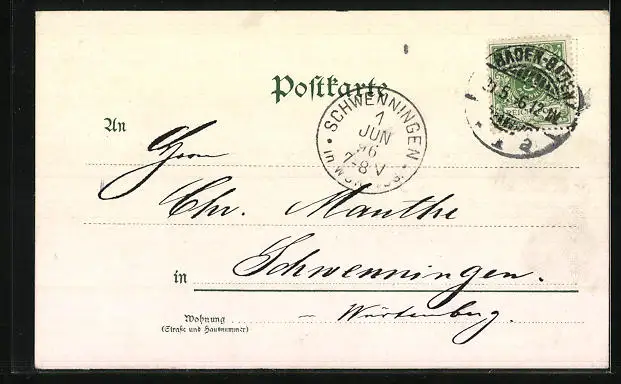 Postkarte
BADEN-BADEN
31.5.96.12-1N.
a
SCHWENNINGEN
1
JUN
96
7-8 V
An
Herrn
Chr. Mauthe
in Schwenningen.
Wohnung
(Straße und Hausnummer)
– Würtenberg.